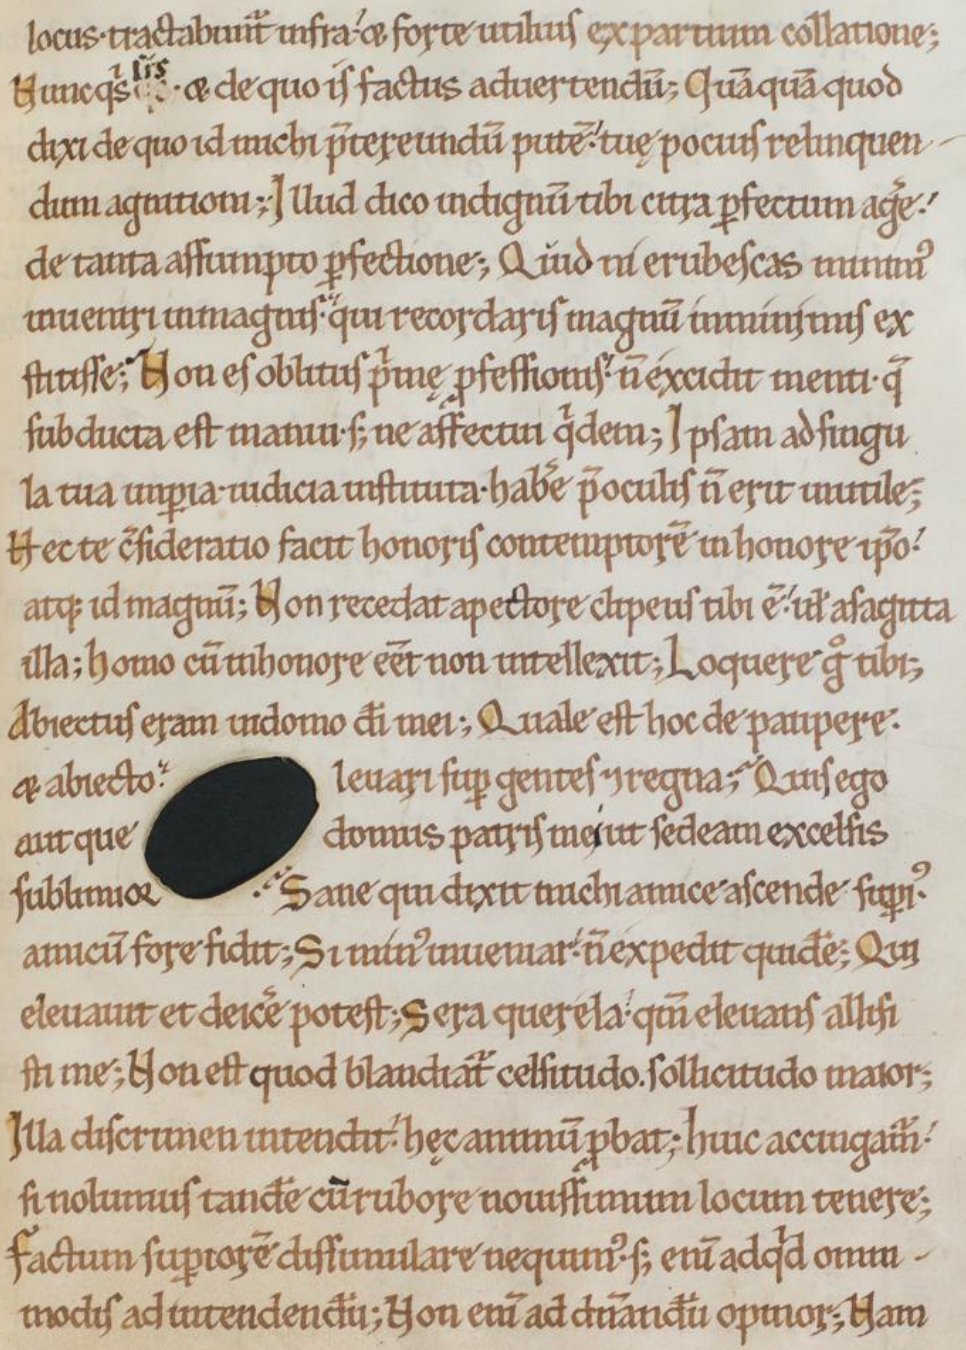 locus· tractabunt᷑ infra· ⁊ forte utilius ex partium collatione;
Nunc qͥs sis · & de quo is̄ factus aduertendū; Quāquā quod
dixi de quo id michi p̄tereundū putē· tuę pocius relinquen-
dum agnitioni; Illud dico indignū tibi citra ꝑfectum agͤe·
de tanta assumpto ꝑfectione; Quid ni erubescas minimꝰ
inueniri in magnis· qui recordaris magnū in minimis ex
stitisse; Non es oblitus pͥmę ꝓfessionis· n̄ excidit menti· qᷓ
subducta est manui· s; ne affectui qͥdem; Ipsam ad singu
la tua imꝑia· iudicia instituta· habͤe p̄ oculis n̄ erit inutile;
Hec te ↄ̄sideratio facit honoris contemptorē in honore ip̄o·
atq; id magnū; Non recedat a pectore clipeus tibi ē· uł a sagitta
illa; homo cū in honore eēt non intellexit; Loquere gͦ tibi;
Abiectus eram in domo d̄i mei; Quale est hoc de paupere·
& abiecto· leuari suꝑ gentes ⁊ regna; Quis ego
aut que domus patris mei ut sedeam excelsis
sublimior Sane qui dixit michi amice ascende suꝑiꝰ·
amicū fore fidit; Si minꝰ inueniar· n̄ expedit quidē; Qui
eleuauit et deicͤe potest; Sera querela· qm̄ eleuans allisi
sti me; Non est quod blandiat᷑ celsitudo. sollicitudo maior;
Illa discrimen intendit· hęc animū ꝓbat; huic accingam̄·
si nolumus tandē cū rubore nouissimum locum tenere;
Factum suꝑiorē dissimulare nequimꝰ· s; enī ad qͥd omni-
modis ad intendendū; Non enī ad dn̄andū opinor; Nam